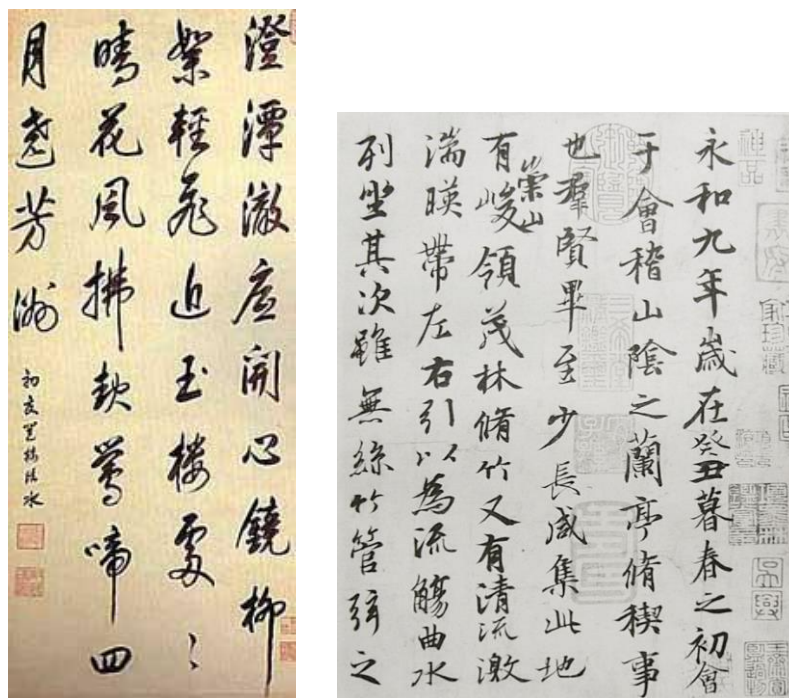 澄潭澈底開心鏡柳
絮輕飛近玉楼處〻
晴花風拂款鶯啼四
月遶芳洲
永和九年歲在癸丑暮春之初會
于會稽山陰之蘭亭脩稧事
也羣賢畢至少長咸集此地
有崇山峻領茂林脩竹又有清流激
湍暎帶左右引以為流觴曲水
列坐其次雖無絲竹管弦之
神品